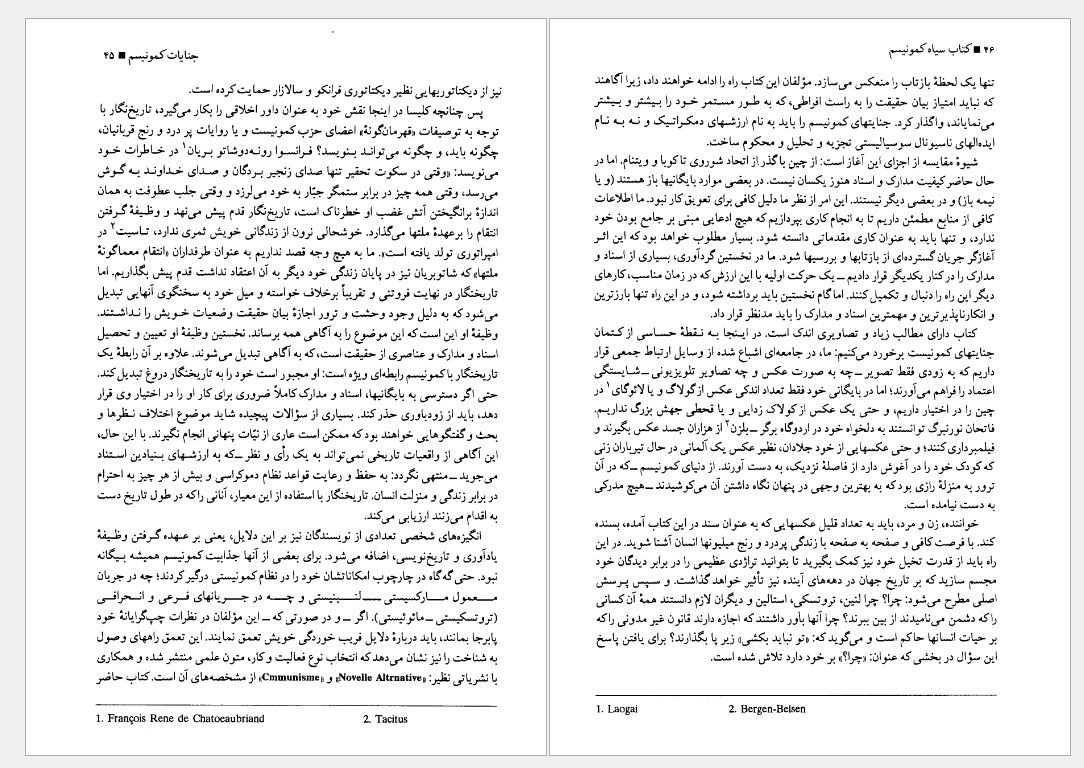 جنایات کمونیسم ■ ۴۵
نیز از دیکتاتوریهایی نظیر دیکتاتوری فرانکو و سالازار حمایت کرده است.
پس چنانچه کلیسا در اینجا نقش خود به عنوان داور اخلاقی را بکار می‌گیرد، تاریخ‌نگار با
توجه به توصیفات «قهرمان‌گونهٔ» اعضای حزب کمونیست و یا روایات پر درد و رنج قربانیان،
چگونه باید، و چگونه می‌تواند بنویسد؟ فرانسوا رونه‌دوشاتو بریان۱ در خاطرات خود
می‌نویسد: «وقتی در سکوت تحقیر تنها صدای زنجیر بردگان و صدای خداوند به گوش
می‌رسد، وقتی همه چیز در برابر ستمگر جبّار به خود می‌لرزد و وقتی جلب عطوفت به همان
اندازهٔ برانگیختن آتش غضب او خطرناک است، تاریخ‌نگار قدم پیش می‌نهد و وظیفهٔ گرفتن
انتقام را برعهدهٔ ملتها می‌گذارد. خوشحالی نرون از زندگانی خویش ثمری ندارد، تاسیت۲ در
امپراتوری تولد یافته است». ما به هیچ وجه قصد نداریم به عنوان طرفداران «انتقام معماگونهٔ
ملتها» که شاتوبریان نیز در پایان زندگی خود دیگر به آن اعتقاد نداشت قدم پیش بگذاریم. اما
تاریخنگار در نهایت فروتنی و تقریباً برخلاف خواسته و میل خود به سخنگوی آنهایی تبدیل
می‌شود که به دلیل وجود وحشت و ترور اجازهٔ بیان حقیقت وضعیات خویش را نداشتند.
وظیفهٔ او این است که این موضوع را به آگاهی همه برساند. نخستین وظیفهٔ او تعیین و تحصیل
اسناد و مدارک و عناصری از حقیقت است، که به آگاهی تبدیل می‌شوند. علاوه بر آن رابطهٔ یک
تاریخنگار با کمونیسم رابطه‌ای ویژه است: او مجبور است خود را به تاریخنگار دروغ تبدیل کند.
حتی اگر دسترسی به بایگانیها، اسناد و مدارک کاملاً ضروری برای کار او را در اختیار وی قرار
دهد، باید از زودباوری حذر کند. بسیاری از سؤالات پیچیده شاید موضوع اختلاف نظرها و
بحث و گفتگوهایی خواهند بود که ممکن است عاری از نیّات پنهانی انجام نگیرند. با این حال،
این آگاهی از واقعیات تاریخی نمی‌تواند به یک رأی و نظر ــ که به ارزشهای بنیادین استناد
می‌جوید ــ منتهی نگردد: به حفظ و رعایت قواعد نظام دموکراسی و بیش از هر چیز به احترام
در برابر زندگی و منزلت انسان. تاریخنگار با استفاده از این معیار، آنانی را که در طول تاریخ دست
به اقدام می‌زنند ارزیابی می‌کند.
انگیزه‌های شخصی تعدادی از نویسندگان نیز بر این دلایل، یعنی بر عهده گرفتن وظیفهٔ
یادآوری و تاریخ‌نویسی، اضافه می‌شود. برای بعضی از آنها جذابیت کمونیسم همیشه بیگانه
نبود. حتی گه گاه در چارچوب امکاناتشان خود را در نظام کمونیستی درگیر کردند؛ چه در جریان
معمول مارکسیستی ــ لنینیستی و چه در جریانهای فرعی و انحرافی
(تروتسکیستی ــ مائوئیستی). اگر ــ و در صورتی که ــ این مؤلفان در نظرات چپ‌گرایانهٔ خود
پابرجا بمانند، باید دربارهٔ دلایل فریب خوردگی خویش تعمق نمایند. این تعمق راههای وصول
به شناخت را نیز نشان می‌دهد که انتخاب نوع فعالیت و کار، متون علمی منتشر شده و همکاری
با نشریاتی نظیر: «Novelle Altrnative» و «Cmmunisme» از مشخصه‌های آن است. کتاب حاضر
1. François Rene de Chatoeaubriand 2. Tacitus
۴۶ ■ کتاب سیاه کمونیسم
تنها یک لحظهٔ بازتاب را منعکس می‌سازد. مؤلفان این کتاب راه را ادامه خواهند داد، زیرا آگاهند
که نباید امتیاز بیان حقیقت را به راست افراطی، که به طور مستمر خود را بیشتر و بیشتر
می‌نمایاند، واگذار کرد. جنایتهای کمونیسم را باید به نام ارزشهای دمکراتیک و نه به نام
ایده‌الهای ناسیونال سوسیالیستی تجزیه و تحلیل و محکوم ساخت.
شیوهٔ مقایسه از اجزای این آغاز است: از چین با گذر از اتحاد شوروی تا کوبا و ویتنام. اما در
حال حاضر کیفیت مدارک و اسناد هنوز یکسان نیست. در بعضی موارد بایگانیها باز هستند (و یا
نیمه باز) و در بعضی دیگر نیستند. این امر از نظر ما دلیل کافی برای تعویق کار نبود. ما اطلاعات
کافی از منابع مطمئن داریم تا به انجام کاری بپردازیم که هیچ ادعایی مبنی بر جامع بودن خود
ندارد، و تنها باید به عنوان کاری مقدماتی دانسته شود. بسیار مطلوب خواهد بود که این اثر
آغازگر جریان گسترده‌ای از بازتابها و بررسیها شود. ما در نخستین گردآوری، بسیاری از اسناد و
مدارک را در کنار یکدیگر قرار دادیم ــ یک حرکت اولیه با این ارزش که در زمان مناسب، کارهای
دیگر این راه را دنبال و تکمیل کنند. اما گام نخستین باید برداشته شود، و در این راه تنها بارزترین
و انکارناپذیرترین و مهمترین اسناد و مدارک را باید مدنظر قرار داد.
کتاب دارای مطالب زیاد و تصاویری اندک است. در اینجا به نقطهٔ حساسی از کتمان
جنایتهای کمونیست برخورد می‌کنیم: ما، در جامعه‌ای اشباع شده از وسایل ارتباط جمعی قرار
داریم که به زودی فقط تصویر ــ چه به صورت عکس و چه تصاویر تلویزیونی ــ شایستگی
اعتماد را فراهم می‌آورند؛ اما در بایگانی خود فقط تعداد اندکی عکس از گولاگ و یا لائوگای۱ در
چین را در اختیار داریم، و حتی یک عکس از کولاک زدایی و یا قحطی جهش بزرگ نداریم.
فاتحان نورنبرگ توانستند به دلخواه خود در اردوگاه برگر ــ بلزن۲ از هزاران جسد عکس بگیرند و
فیلمبرداری کنند؛ و حتی عکسهایی از خود جلادان، نظیر عکس یک آلمانی در حال تیرباران زنی
که کودک خود را در آغوش دارد از فاصلهٔ نزدیک، به دست آورند. از دنیای کمونیسم ــ که در آن
ترور به منزلهٔ رازی بود که به بهترین وجهی در پنهان نگاه داشتن آن می‌کوشیدند ــ هیچ مدرکی
به دست نیامده است.
خواننده، زن و مرد، باید به تعداد قلیل عکسهایی که به عنوان سند در این کتاب آمده، بسنده
کند. با فرصت کافی و صفحه به صفحه با زندگی پردرد و رنج میلیونها انسان آشنا شوید. در این
راه باید از قدرت تخیل خود نیز کمک بگیرید تا بتوانید تراژدی عظیمی را در برابر دیدگان خود
مجسم سازید که بر تاریخ جهان در دهه‌های آینده نیز تأثیر خواهد گذاشت. و سپس پرسش
اصلی مطرح می‌شود: چرا؟ چرا لنین، تروتسکی، استالین و دیگران لازم دانستند همهٔ آن کسانی
را که دشمن می‌نامیدند از بین ببرند؟ چرا آنها باور داشتند که اجازه دارند قانون غیر مدونی را که
بر حیات انسانها حاکم است و می‌گوید که: «تو نباید بکشی» زیر پا بگذارند؟ برای یافتن پاسخ
این سؤال در بخشی که عنوان: «چرا؟» بر خود دارد تلاش شده است.
1. Laogai 2. Bergen-Belsen